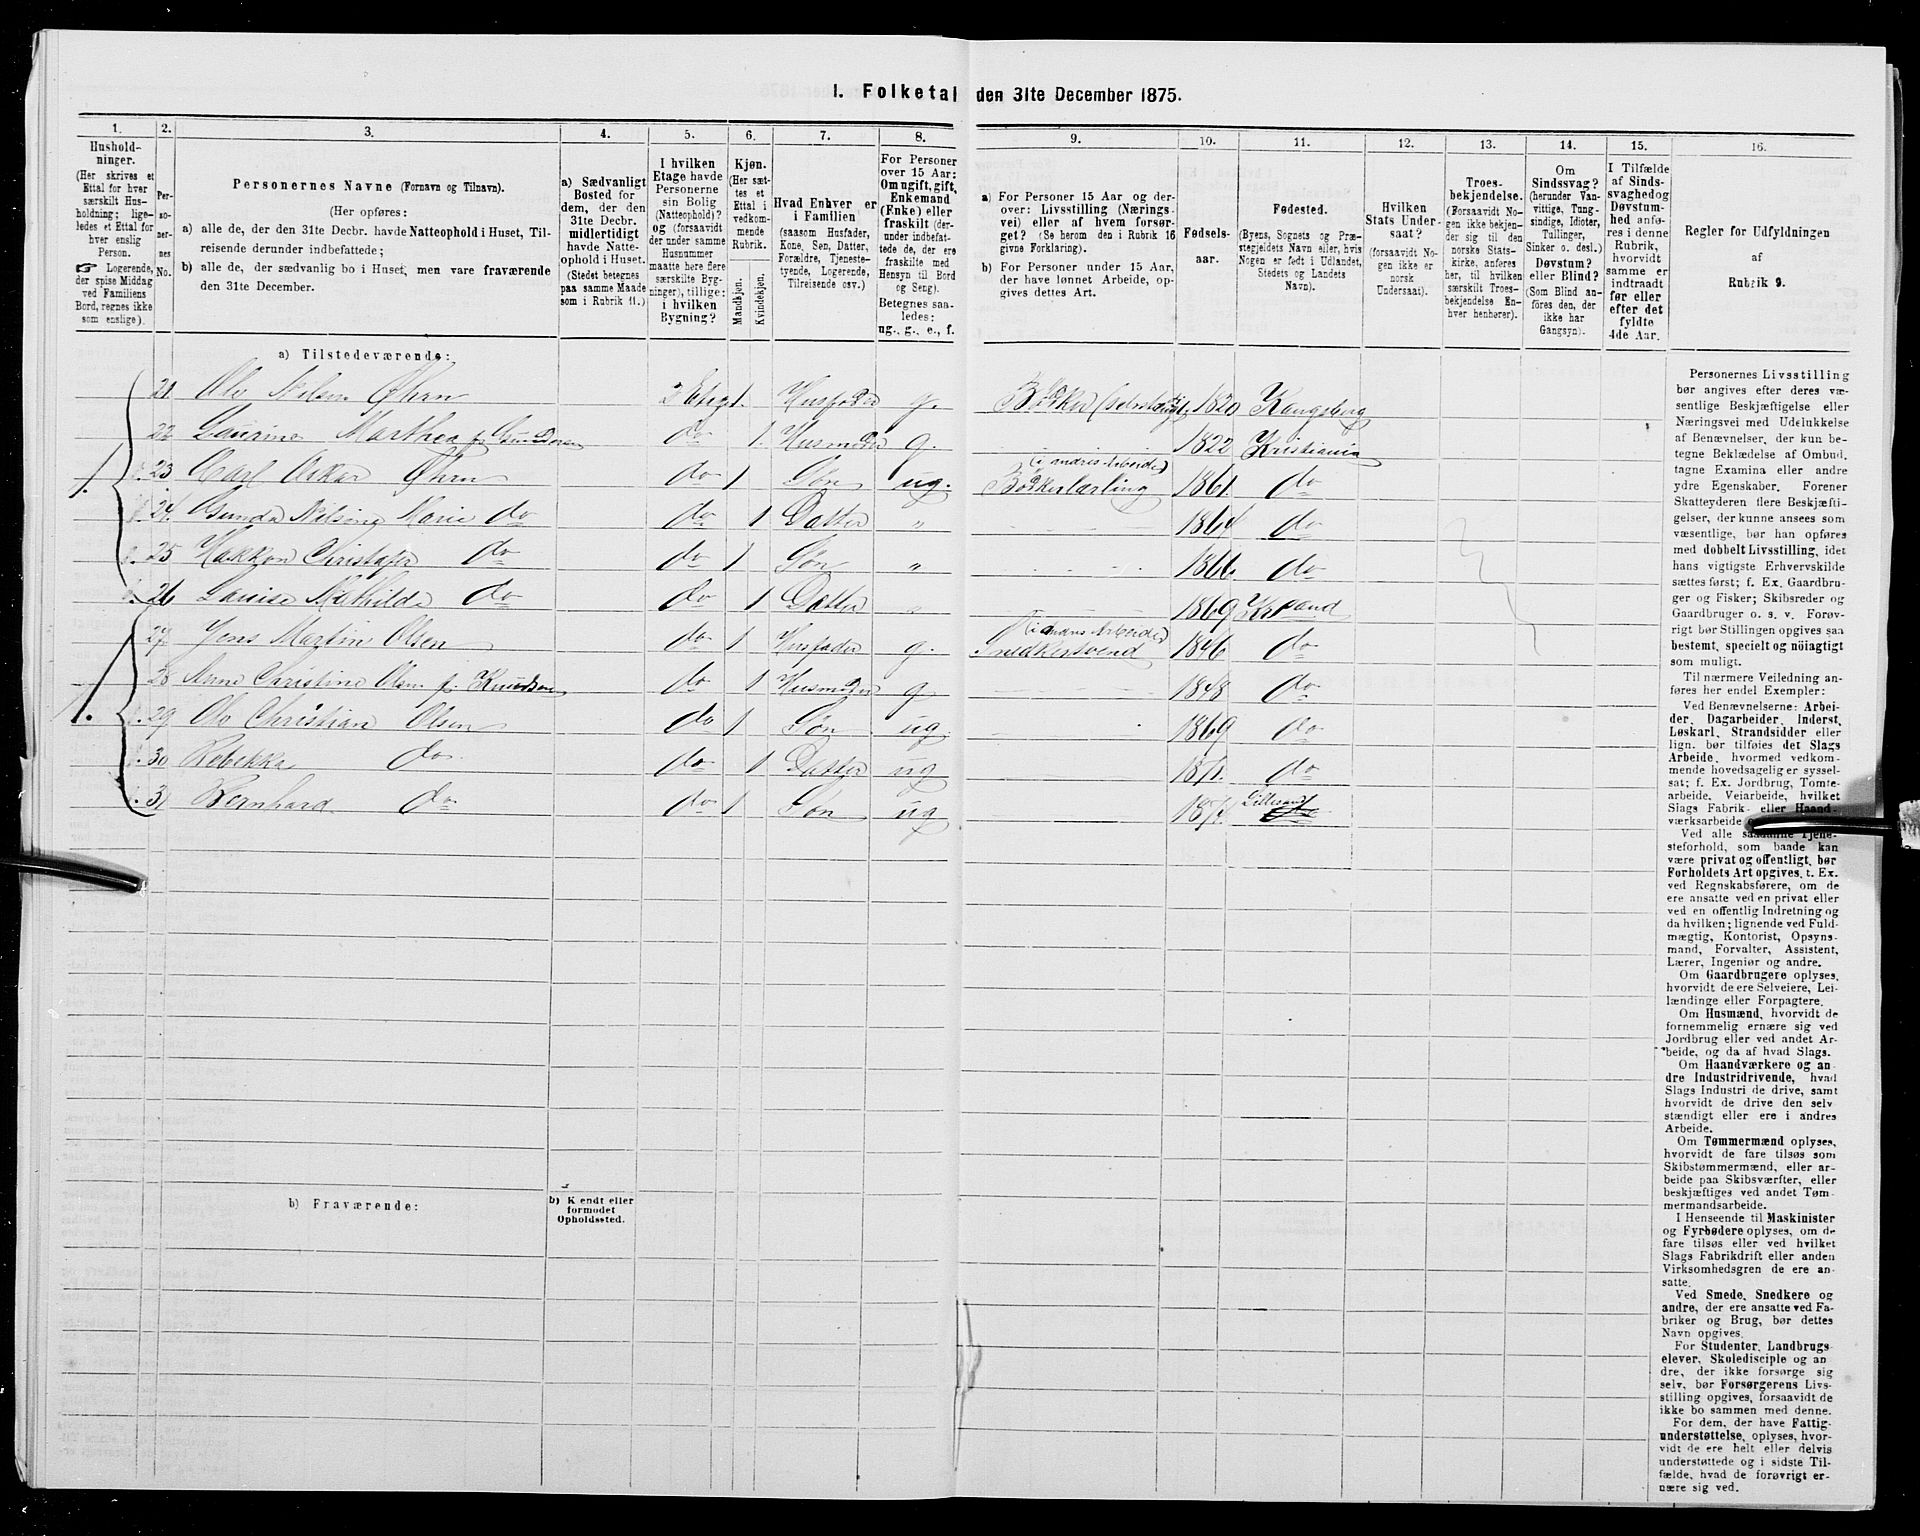 I. Folketal den 31te December 1875.
1. 2. 3. 4. 5. 6. 7. 8. 9. 10. 11. 12. 13. 14. 15. 16.
Hushold-
ninger.
(Her skrives et
Ettal for hver
særskilt Hus-
holdning; lige-
ledes et Ettal for
hver enslig
Person.
☞ Logerende,
der spise Middag
ved Familiens
Bord, regnes ikke
som enslige).
Per-
so-
ner-
nes
No.
Personernes Navne (Fornavn og Tilnavn).
(Her opføres:
a) alle de, der den 31te Decbr. havde Natteophold i Huset, Til-
reisende derunder indbefattede;
b) alle de, der sædvanlig bo i Huset, men vare fraværende
den 31te December.
a) Sædvanligt
Bosted for
dem, der den
31te Decbr.
midlertidigt
havde Natte-
ophold i Huset.
(Stedet betegnes
paa samme Maade
som i Rubrik 11.)
I hvilken
Etage havde
Personerne
sin Bolig
(Natteophold)?
og (forsaavidt
der under samme
Husnummer
maatte høre flere
særskilte Byg-
ninger), tillige:
i hvilken
Bygning?
Kjøn.
(Her sæt-
tes et
Ettal i
vedkom-
mende
Rubrik.
Mandkjøn.
Kvindekjøn.
Hvad Enhver er
i Familien
(saasom Husfader,
Kone, Søn, Datter,
Forældre, Tjeneste-
tyende, Logerende,
Tilreisende osv.)
For Personer
over 15 Aar:
Om ugift, gift,
Enkemand
(Enke) eller
fraskilt (der-
under indbefat-
tede de, der ere
fraskilte med
Hensyn til Bord
og Seng).
Betegnes saa-
ledes:
ug., g., e., f.
a) For Personer 15 Aar og der-
over: Livsstilling (Nærings-
vei) eller af hvem forsør-
get? (Se herom den i Rubrik 16
givne Forklaring).
b) For Personer under 15 Aar,
der have lønnet Arbeide, op-
gives dettes Art.
Fødsels-
aar.
Fødested.
(Byens, Sognets og Præ-
stegjeldets Navn eller, hvis
Nogen er født i Udlandet,
Stedets og Landets
Navn).
Hvilken
Stats Under-
saat?
(forsaavidt No-
gen ikke er
norsk
Undersaat).
Troes-
bekjendelse.
(Forsaavidt No-
gen ikke bekjen-
der sig til den
norske Stats-
kirke, anføres
her, til hvilken
særskilt Troes-
bekjendelse En-
hver henhører).
Om
Sindssvag?
(herunder Van-
vittige, Tung-
sindige, Idioter,
Tullinger,
Sinker o. desl.)
Døvstum?
eller Blind?
(Som Blind an-
føres den, der
ikke har
Gangsyn).
I Tilfælde
af Sinds-
svaghed og
Døvstum-
hed anfø-
res i denne
Rubrik,
hvorvidt
samme er
indtraadt
før eller
efter det
fyldte
4de Aar.
Regler for Udfyldningen
af
Rubrik 9.
a) Tilstedeværende:
21 Ole Nilsen Øhrn 2 Etage 1 Husfader g. Bødker (selvstændigt) 1820 Kongsberg
22 Laurine Marthea f. Gundersen do 1 Husmoder g. 1822 Kristiania
1. 23 Carl Oskar Øhrn do 1 Søn ug. Bødkerlærling (i andres Arbeide) 1861 do
24 Gunda Nilsine Marie do do 1 Datter " 1864 do
25 Hakkon Christofer do do 1 Søn " 1866 do
26 Louise Mathilde do do 1 Datter " 1869 Krsand
27 Jens Martin Olsen do 1 Husfader g. Snedkersvend (i andres Arbeide) 1846 do
28 Anne Christine Olsen f. Knudsen do 1 Husmoder g 1848 do
1. 29 Ole Christian Olsen do 1 Søn ug. 1869 do
30 Rebekka do do 1 Datter ug 1871 do
31 Bernhard do do 1 Søn ug Lillesand
b) Fraværende:
b) Kjendt eller
formodet
Opholdssted.
Personernes Livsstilling
bør angives efter deres væ-
sentlige Beskjæftigelse eller
Næringsvei med Udelukkelse
af Benævnelser, der kun be-
tegne Beklædelse af Ombud,
tagne Examina eller andre
ydre Egenskaber. Forener
Skatteyderen flere Beskjæfti-
gelser, der kunne ansees som
væsentlige, bør han opføres
med dobbelt Livsstilling, idet
hans vigtigste Erhvervskilde
sættes først; f. Ex. Gaardbru-
ger og Fisker; Skibsreder og
Gaardbruger o. s. v. Forøv-
rigt bør Stillingen opgives saa
bestemt, specielt og nøiagtigt
som muligt.
Til nærmere Veiledning an-
føres her endel Exempler:
Ved Benævnelserne: Arbei-
der, Dagarbeider, Inderst,
Løskarl, Strandsidder eller
lign. bør tilføies det Slags
Arbeide, hvormed vedkom-
mende hovedsagelig er syssel-
sat; f. Ex. Jordbrug, Tomte-
arbeide, Veiarbeide, hvilket
Slags Fabrik- eller Haand-
værksarbeide
Ved alle saadanne Tjene-
steforhold, som baade kan
være privat og offentligt, bør
Forholdets Art opgives, t. Ex.
ved Regnskabsførere, om de
ere ansatte ved en privat eller
ved en offentlig Indretning og
da hvilken; lignende ved Fuld-
mægtig, Kontorist, Opsyns-
mand, Forvalter, Assistent,
Lærer, Ingeniør og andre.
Om Gaardbrugere oplyses,
hvorvidt de ere Selveiere, Lei-
lændinge eller Forpagtere.
Om Husmænd, hvorvidt de
fornemmelig ernære sig ved
Jordbrug eller ved andet Ar-
beide, og da af hvad Slags.
Om Haandværkere og an-
dre Industridrivende, hvad
Slags Industri de drive, samt
hvorvidt de drive den selv-
stændigt eller ere i andres
Arbeide.
Om Tømmermænd oplyses,
hvorvidt de fare tilsøs som
Skibstømmermænd, eller ar-
beide paa Skibsværfter, eller
beskjæftiges ved andet Tøm-
mermandsarbeide.
I Henseende til Maskinister
og Fyrbødere oplyses, om de
fare tilsøs eller ved hvilket
Slags Fabrikdrift eller anden
Virksomhedsgren de ere an-
satte.
Ved Smede, Snedkere og
andre, der ere ansatte ved Fa-
briker og Brug, bør dettes
Navn opgives.
For Studenter, Landbrugs-
elever, Skoledisciple og an-
dre, der ikke forsørge sig
selv, bør Forsørgerens Livs-
stilling opgives, forsaavidt de
ikke bo sammen med denne.
For dem, der have Fattig-
understøttelse, oplyses, hvor-
vidt de ere helt eller delvis
understøttede og i sidste Til-
fælde, hvad de forøvrigt er-
nære sig ved.